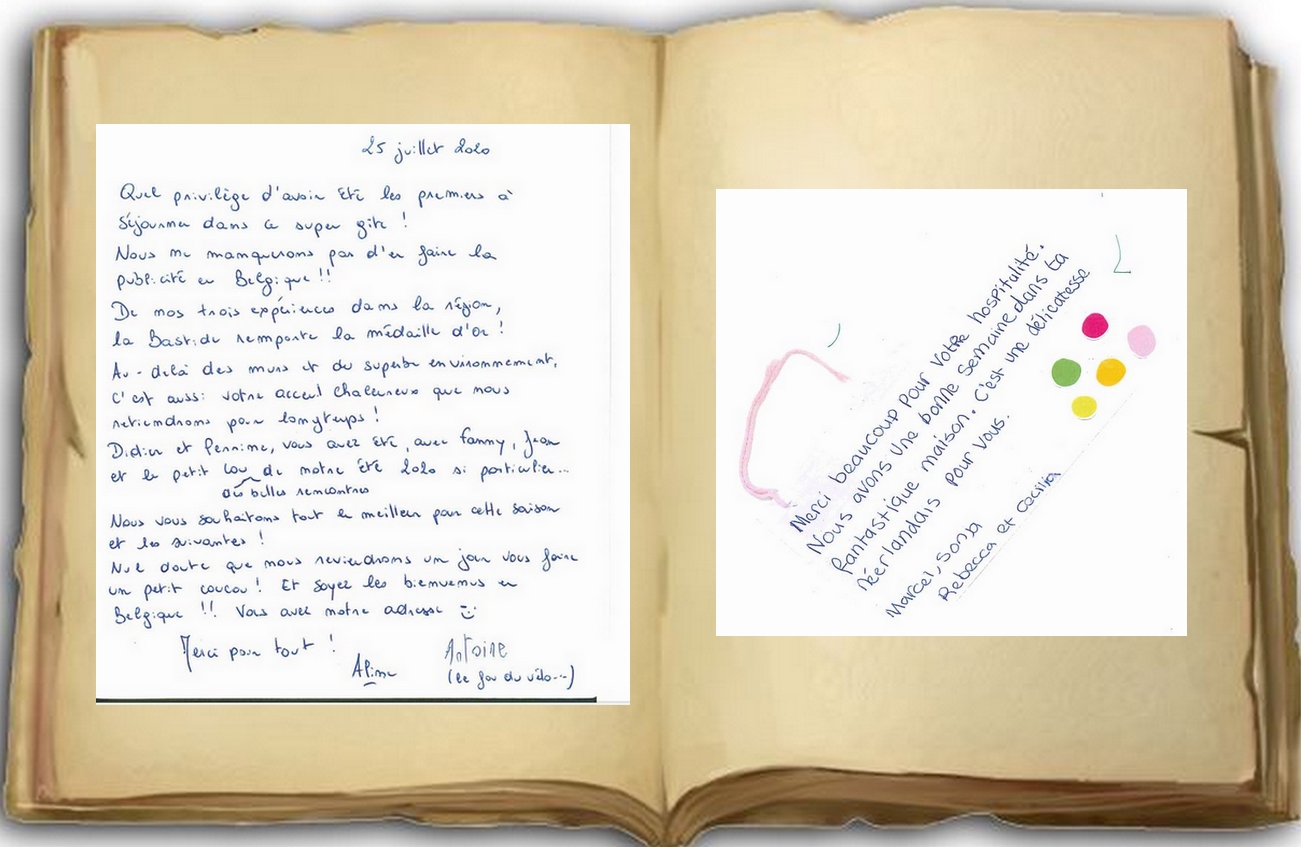 25 juillet 2020
Quel privilège d'avoir été les premiers à
séjourner dans ce super gîte !
Nous ne manquerons pas d'en faire la
publicité en Belgique !!
De nos trois expériences dans la région,
la Bastide remporte la médaille d'or !
Au-delà des murs et du superbe environnement,
c'est aussi votre accueil chaleureux que nous
retiendrons pour longtemps !
Didier et Perrine, vous avez été, avec Fanny, Jean
et le petit Lou de notre été 2020 si particulier...
des belles rencontres
Nous vous souhaitons tout le meilleur pour cette saison
et les suivantes !
Nul doute que nous reviendrons un jour vous faire
un petit coucou ! Et soyez les bienvenus en
Belgique !! Vous avez notre adresse
Merci pour tout !
Aline
Antoine
(le fou du vélo...)
Merci beaucoup pour votre hospitalité.
Nous avons une bonne semaine dans ta
fantastique maison. C'est une délicatesse
néerlandais pour vous.
Marcel, Sonja
Rebecca et Cecilia